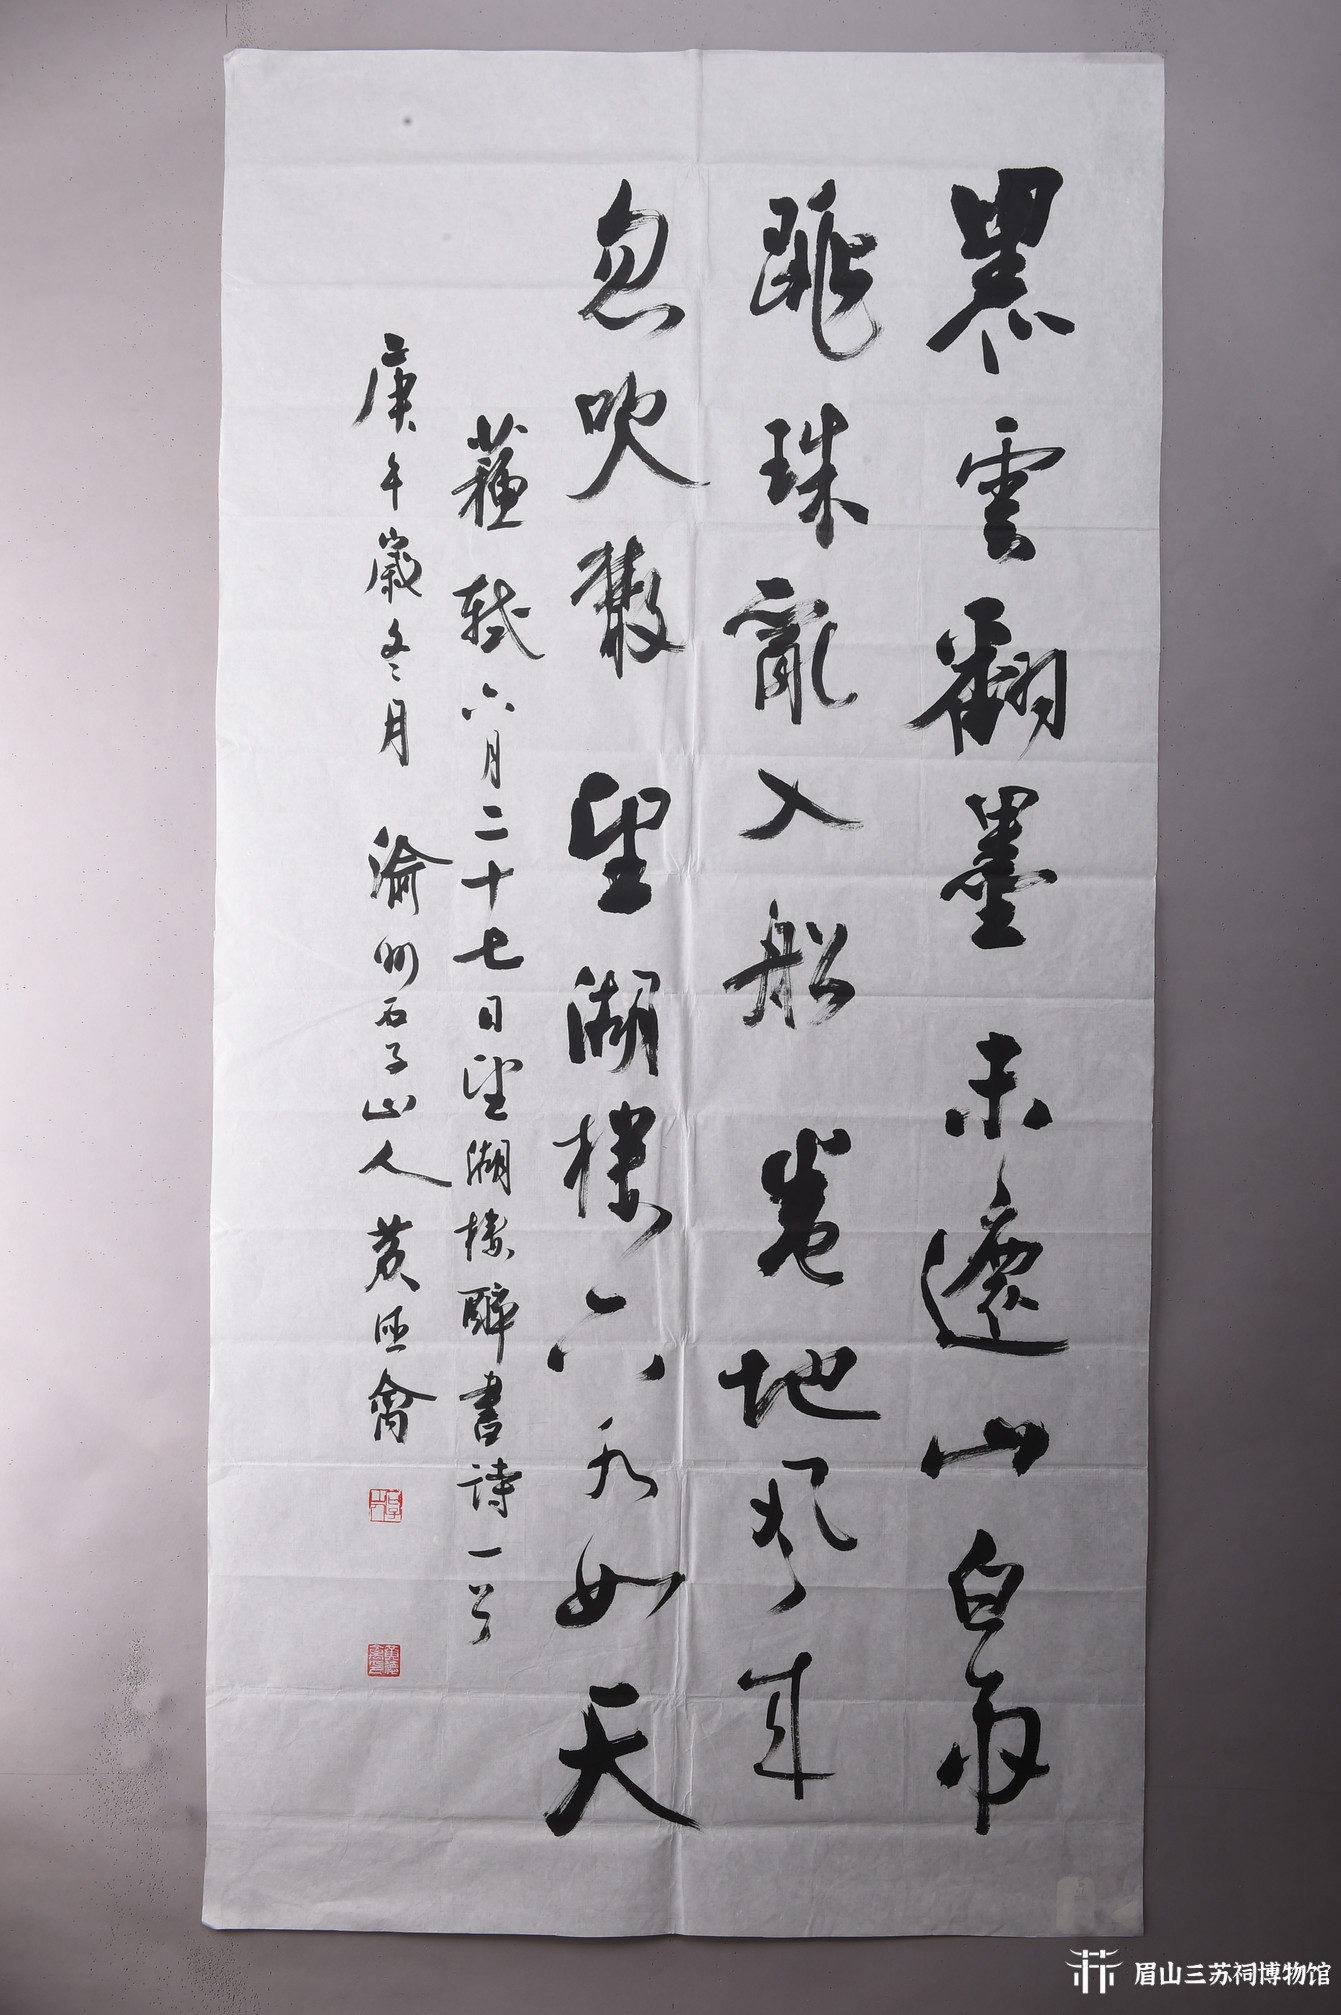 黑雲翻墨未遮山白雨
跳珠亂入船卷地風來
忽吹散望湖樓下水如天
蘇軾六月二十七日望湖樓醉書詩一首
庚午歲冬月渝州石子山人黄德
石子山人
眉山三苏祠博物馆